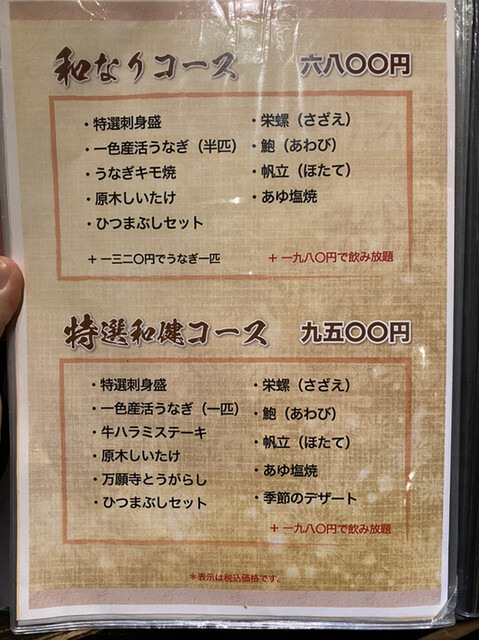 和なりコース 六八〇〇円
・特選刺身盛
・一色産活うなぎ（半匹）
・うなぎキモ焼
・原木しいたけ
・ひつまぶしセット
・栄螺（さざえ）
・鮑（あわび）
・帆立（ほたて）
・あゆ塩焼
＋一三二〇円でうなぎ一匹
＋一九八〇円で飲み放題
特選和健コース 九五〇〇円
・特選刺身盛
・一色産活うなぎ（一匹）
・牛ハラミステーキ
・原木しいたけ
・万願寺とうがらし
・ひつまぶしセット
・栄螺（さざえ）
・鮑（あわび）
・帆立（ほたて）
・あゆ塩焼
・季節のデザート
＋一九八〇円で飲み放題
＊表示は税込価格です。